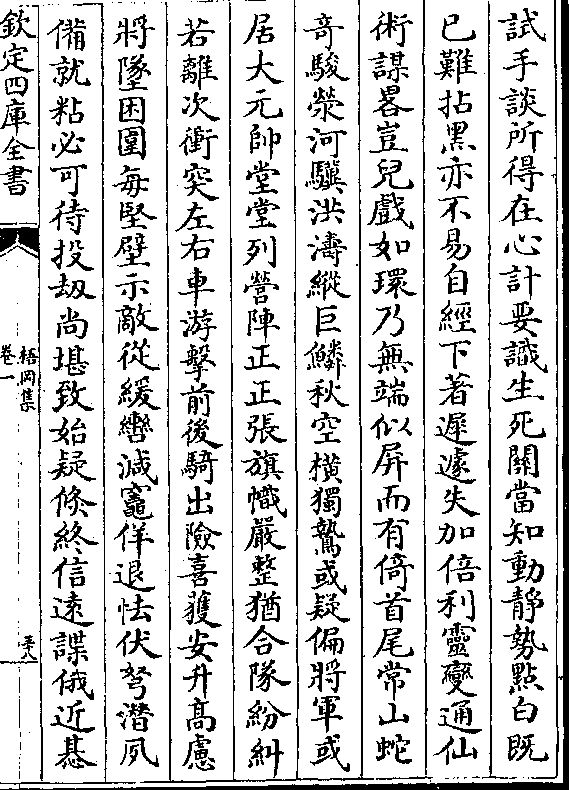 試手談所得在心計要識生死關當知動靜勢點白既
已難拈黑亦不易自經下著遲遽失加倍利靈變通仙
術謀畧豈兒戲如環乃無端似屏而有倚首尾常山蛇
奇駿滎河驥洪濤縱巨鱗秋空橫獨鷙或疑偏將軍或
居大元帥堂堂列營陣正正張旗幟嚴整猶合隊紛糾
若離次衝突左右車游擊前後騎出險喜獲安升高慮
將墜困圍每堅壁示敵從緩轡減竈佯退怯伏弩潛夙
備就粘必可待投劫尚堪致始疑倏終信遠諜俄近惎
欽定四庫全書
梧岡集
卷一
三十八